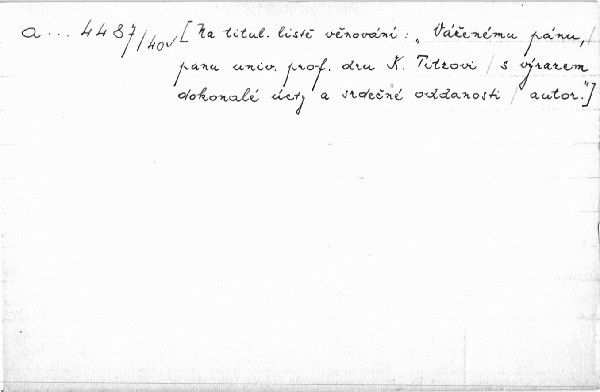 a... 4487/40v [Na titul. listě věnování: „Váženému pánu,/
panu univ. prof. dru K. Titzovi / s výrazem
dokonalé úcty a srdečné oddanosti / autor."]